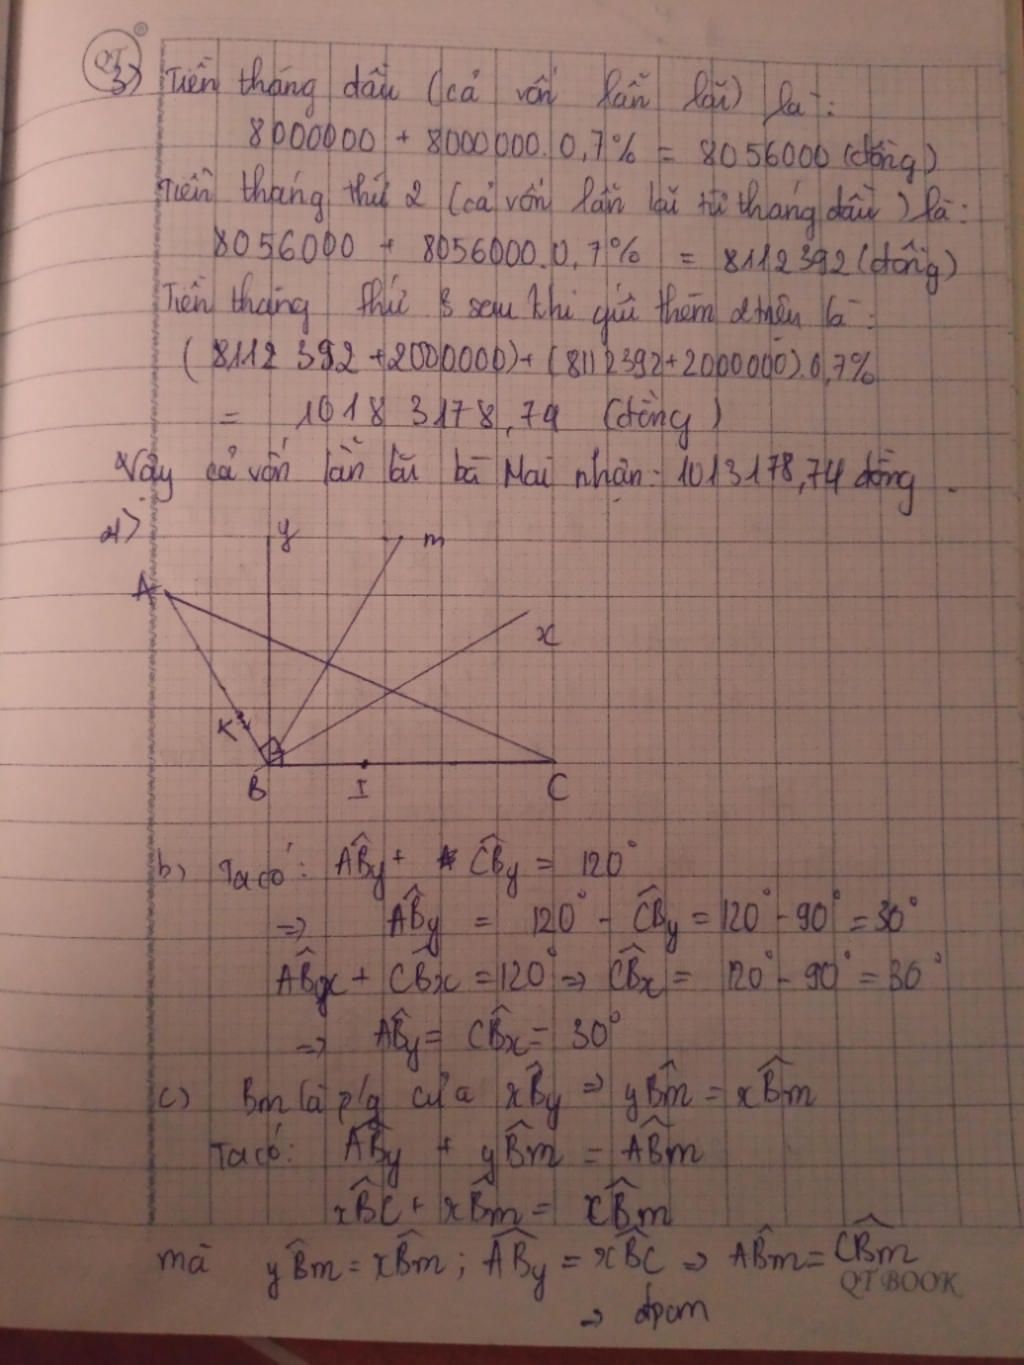 QT
3) Tiền tháng đầu (cả vốn lẫn lãi) là:
8000000 + 8000000.0,7% = 8056000 (đồng)
Tiền tháng thứ 2 (cả vốn lẫn lãi từ tháng đầu) là:
8056000 + 8056000.0,7% = 8112392 (đồng)
Tiền tháng thứ 3 sau khi gửi thêm 2 triệu là:
(8112 392 + 2000000) + (8112392 + 2000000).0,7%
= 1018 3178,74 (đồng)
Vậy cả vốn lẫn lãi bà Mai nhận: 1013178,74 đồng.
4)
y m
A
x
K
B I C
b) Ta có: ABy + CBy = 120°
=> ABy = 120° - CBy = 120° - 90° = 30°
ABx + CBx = 120° => CBx = 120° - 90° = 30°
=> ABy = CBx = 30°
c) Bm là p/g của xBy => yBm = xBm
Ta có: ABy + yBm = ABm
xBC + xBm = CBm
mà yBm = xBm; ABy = xBC => ABm = CBm
QT BOOK
=> đpcm